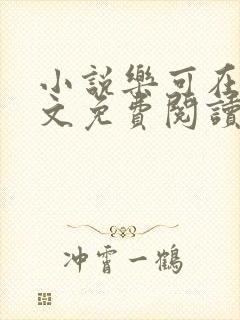 小說樂可在
文免費閱讀
冲霄一鶴